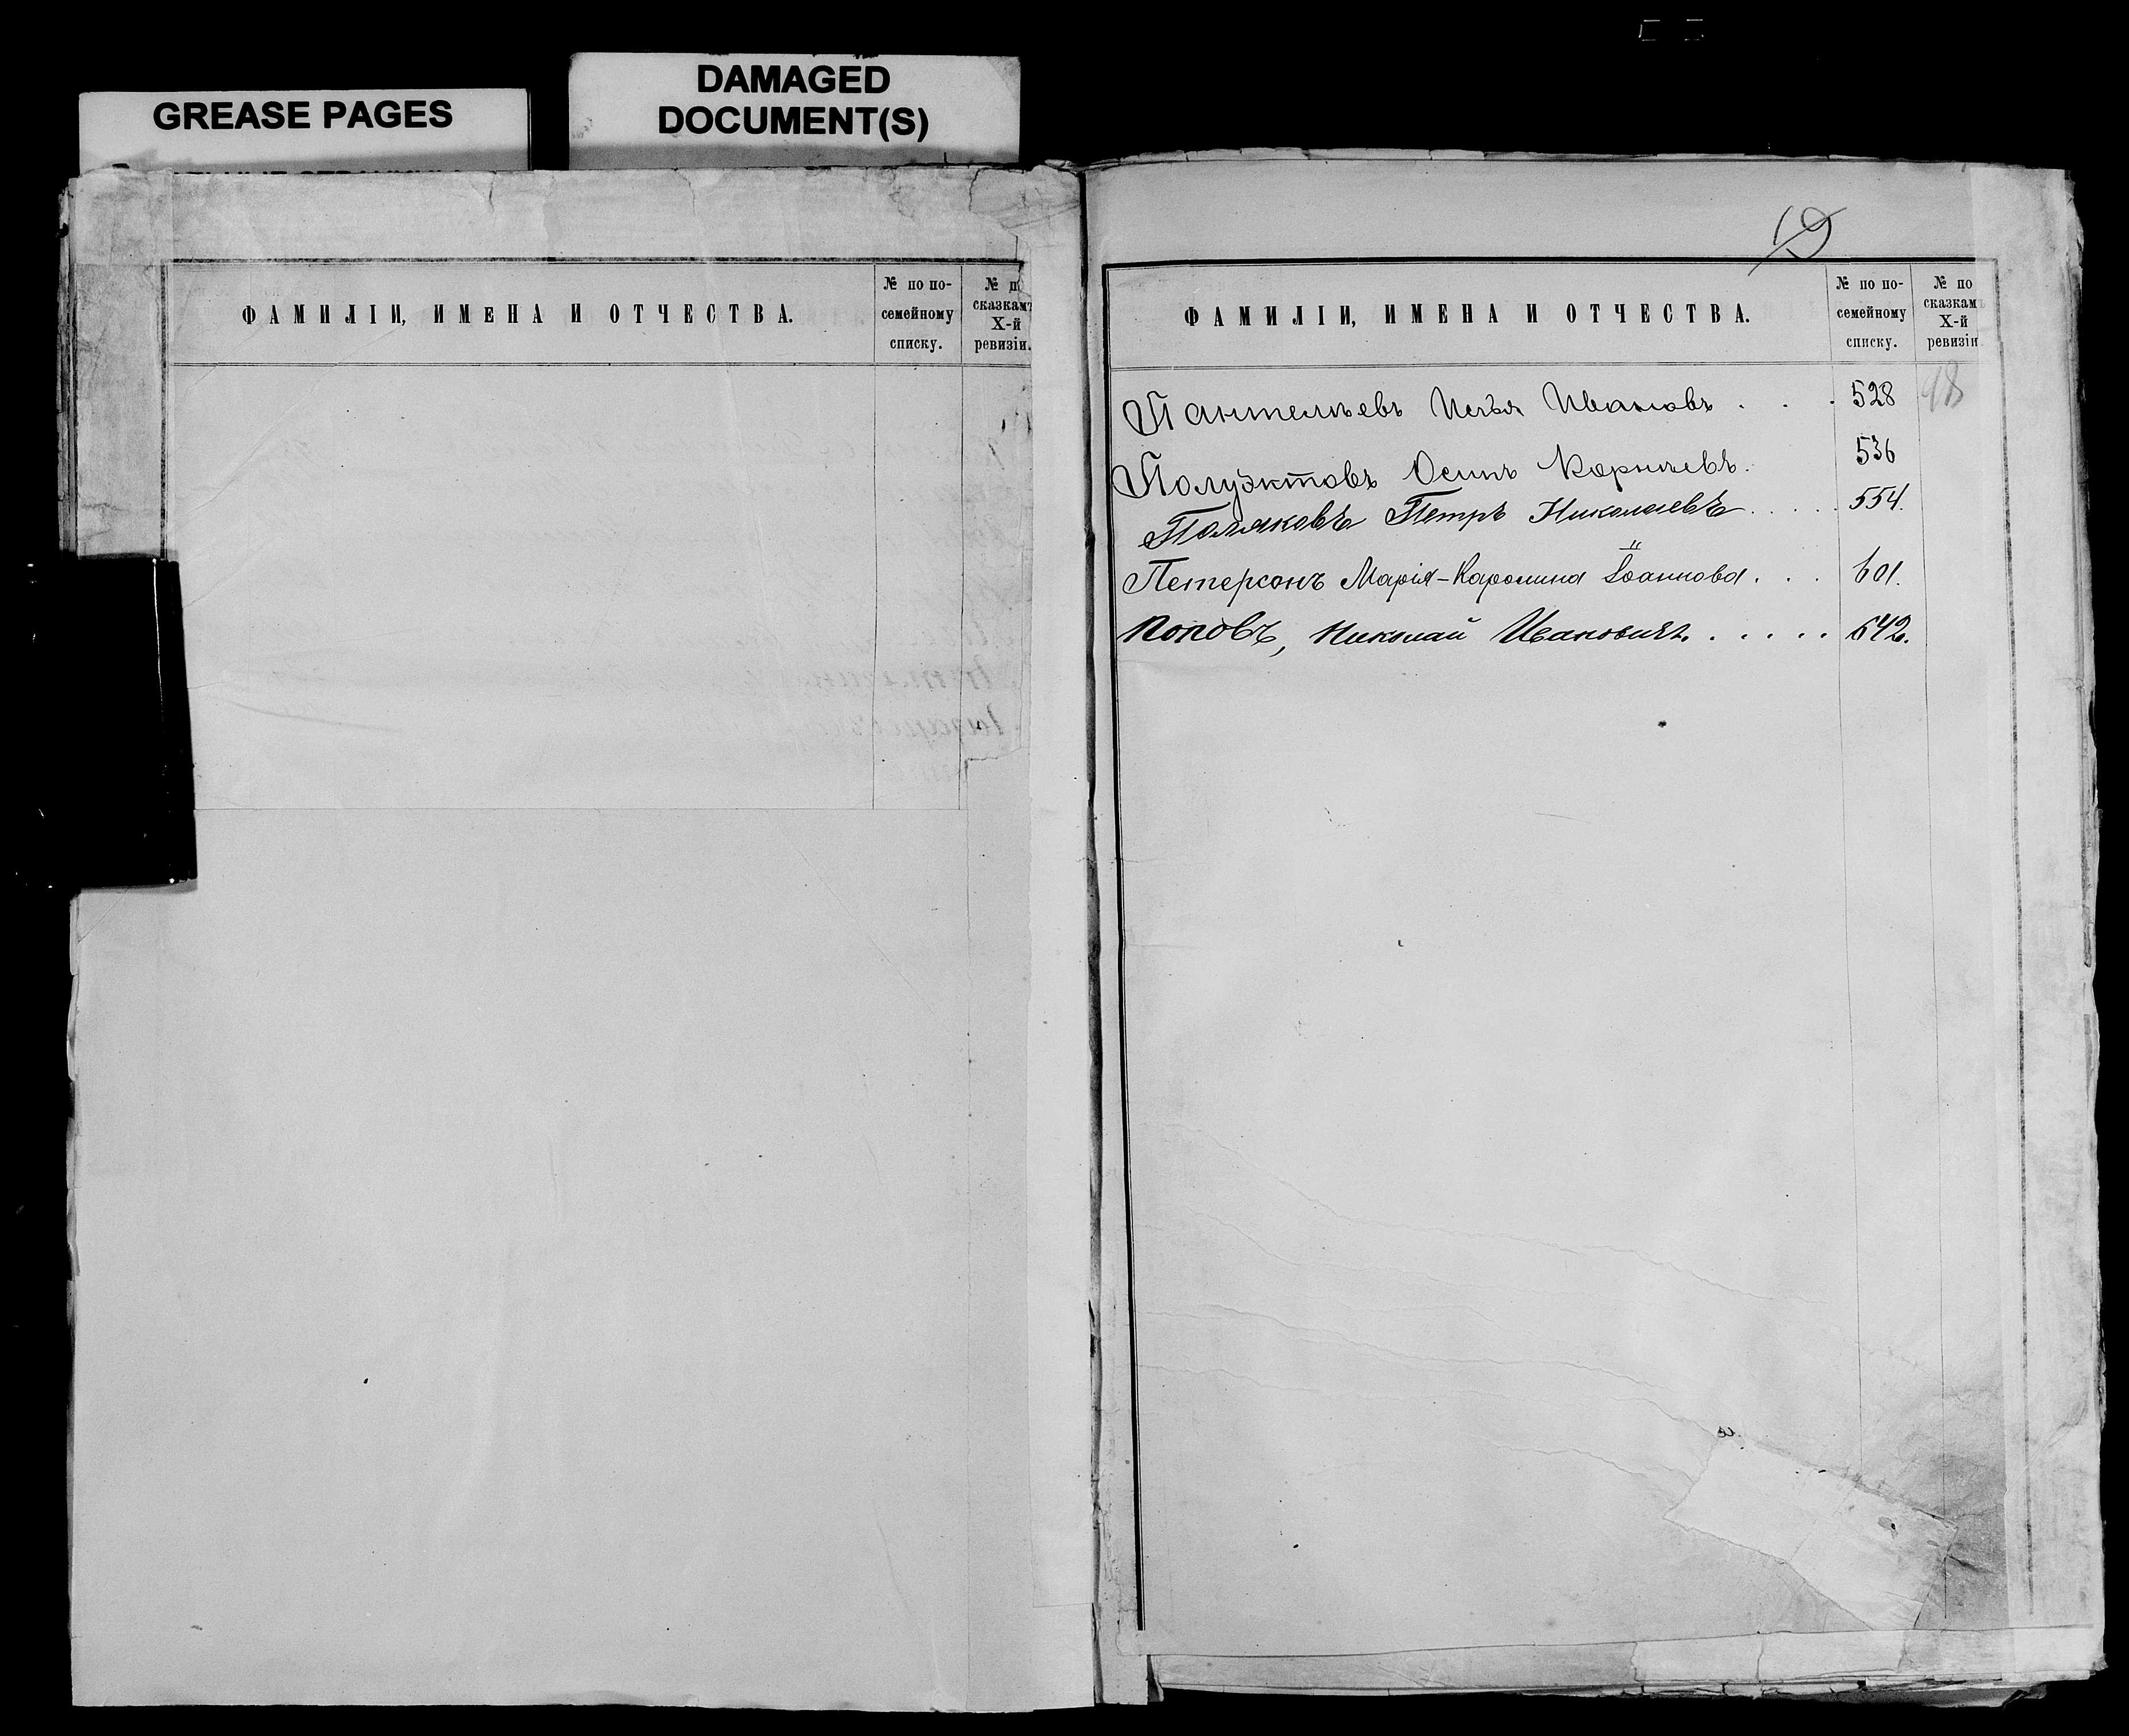 GREASE PAGES
DAMAGED
DOCUMENT(S)
ФАМИЛІИ, ИМЕНА И ОТЧЕСТВА.
№ по по-
семейному
списку.
№ п
сказкам
X-й
ревизіи.
19
ФАМИЛІИ, ИМЕНА И ОТЧЕСТВА.
№ по по-
семейному
списку.
№ по
сказкам
X-й
ревизіи
Пантелѣевъ Илья Ивановъ . . . 528 98
Полуэктовъ Осипъ Корнѣевъ. 536
Поляковъ Петръ Николаевъ . . . . . 554.
Петерсонъ Марія-Каролина Іоаннова . . . 601.
Поповъ, Николай Ивановичъ. . . . . . 642.